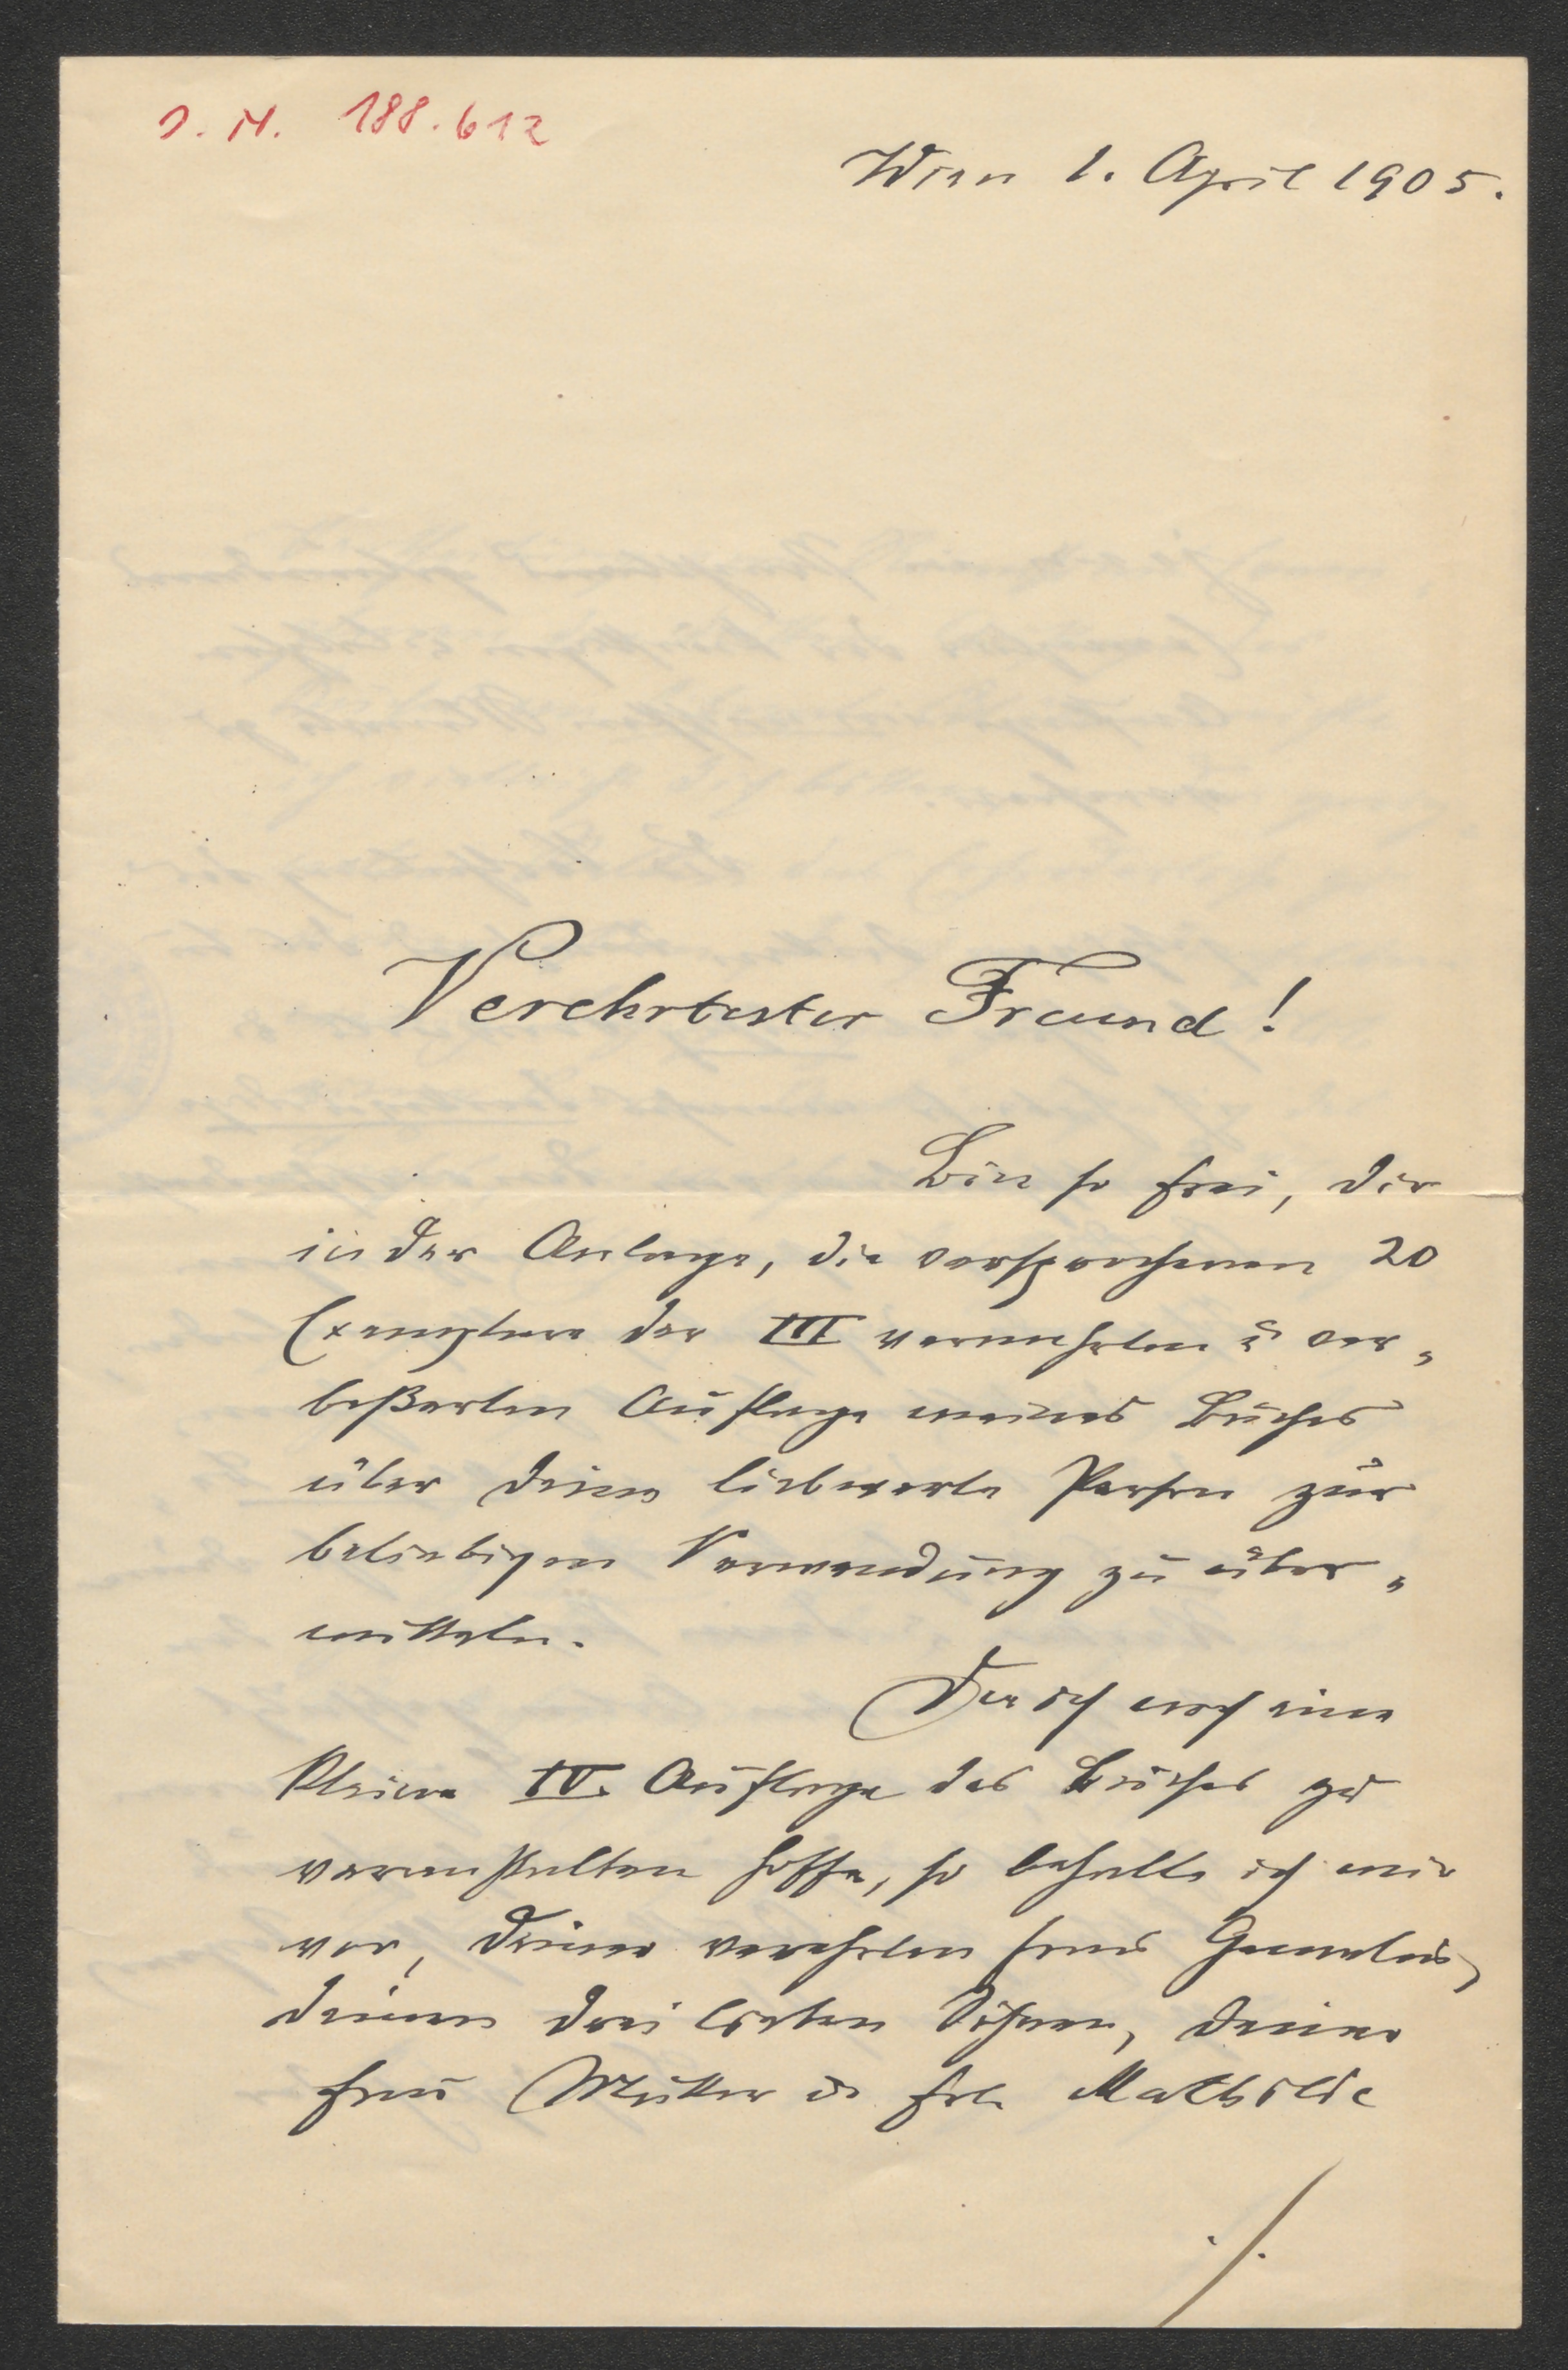 J. N. 188.612
Wien 1. April 1905.
Verehrtester Freund!
Bin so frei, Dir
in der Anlage, die versprochenen 20
Exemplare der III vermehrten u ver„
beßerten Auflage meines Buches
über Deine liebwerte Person zur
beliebigen Verwendung zu über„
mitteln.
Da ich noch eine
kleine IV. Auflage des Buches zu
veranstalten hoffe, so behalte ich mir
vor, Deiner verehrten Frau Gemalin,
Deinen drei lieben Söhnen, Deiner
Frau Mutter u Frl. Mathilde
./.